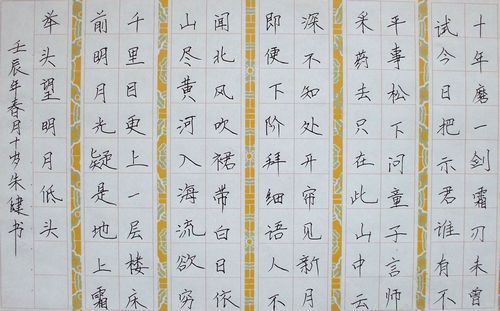 十年磨一剑霜刃未曾
试今日把示君谁有不
平事松下问童子言师
采药去只在此山中云
深不知处开帘见新月
即便下阶拜细语人不
闻北风吹裙带白日依
山尽黄河入海流欲穷
千里目更上一层楼床
前明月光疑是地上霜
举头望明月低头
壬辰年春月十岁朱健书